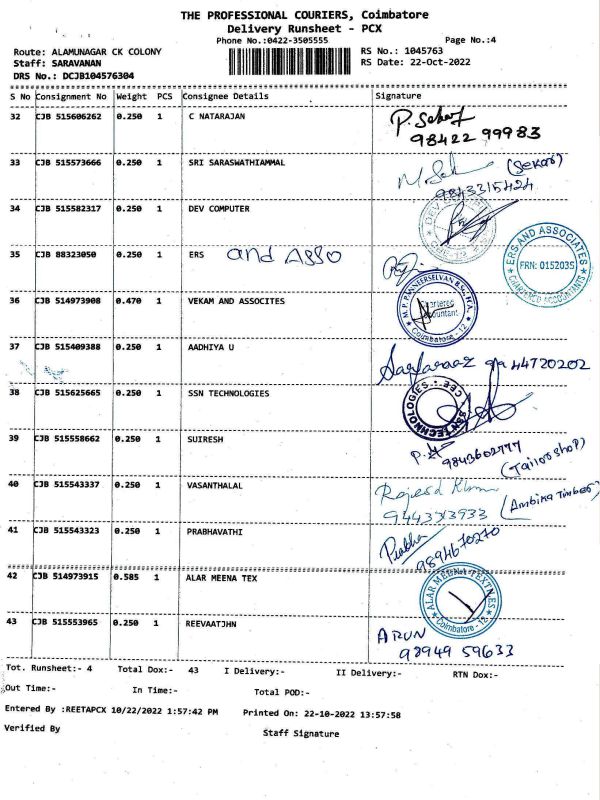 THE PROFESSIONAL COURIERS, Coimbatore
Delivery Runsheet - PCX
Phone No.:0422-3505555 Page No.:4
Route: ALAMUNAGAR CK COLONY RS No.: 1045763
Staff: SARAVANAN RS Date: 22-Oct-2022
DRS No.: DCJB104576304
S No Consignment No Weight PCS Consignee Details Signature
32 CJB 515606262 0.250 1 C NATARAJAN P. Sekar
98422 99983
33 CJB 515573666 0.250 1 SRI SARASWATHIAMMAL (Sekar)
9843315424
34 CJB 515582317 0.250 1 DEV COMPUTER
35 CJB 88323050 0.250 1 ERS and ASSO
ERS AND ASSOCIATES
FRN: 015203S
CHARTERED ACCOUNTANTS
36 CJB 514973908 0.470 1 VEKAM AND ASSOCITES
Chartered
Accountant
Coimbatore - 12
37 CJB 515409388 0.250 1 AADHIYA U Sarfaraaz 9944720202
38 CJB 515625665 0.250 1 SSN TECHNOLOGIES
SSN TECHNOLOGIES
39 CJB 515558662 0.250 1 SUIRESH
9843602777
(Tailor shop)
40 CJB 515543337 0.250 1 VASANTHALAL
(Ambika Timber)
41 CJB 515543323 0.250 1 PRABHAVATHI Prabha
9894670270
42 CJB 514973915 0.585 1 ALAR MEENA TEX
ALAR MEENA TEXTILES
Coimbatore - 12
43 CJB 515553965 0.250 1 REEVAATJHN ARUN
98949 59633
Tot. Runsheet:- 4 Total Dox:- 43 I Delivery:- II Delivery:- RTN Dox:-
Out Time:- In Time:- Total POD:-
Entered By :REETAPCX 10/22/2022 1:57:42 PM Printed On: 22-10-2022 13:57:58
Verified By Staff Signature